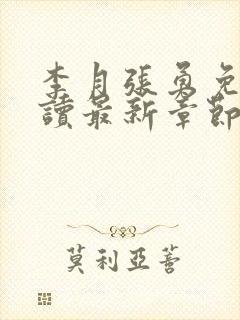 李月張勇免
讀最新章節
莫利亞菩